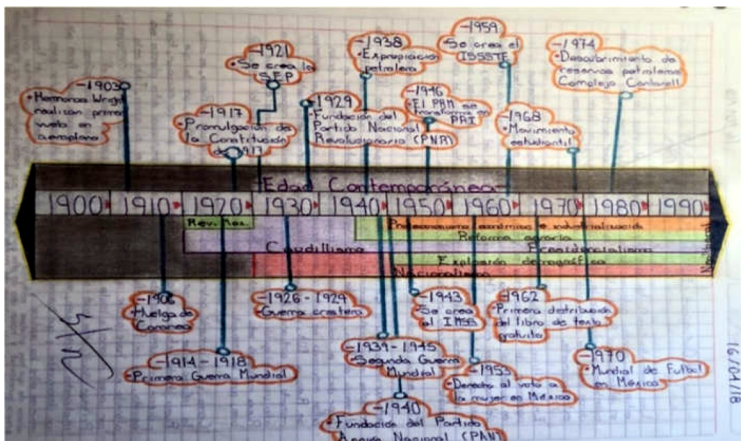 -1903
•Hermanos Wright
realizan primer
vuelo en
aeroplano
-1917
•Promulgación de
la Constitución
de 1917
-1921
•Se crea la
SEP
-1929
•Fundación del
Partido Nacional
Revolucionario (PNR)
-1938
•Expropiación
petrolera
-1946
•El PRM se
transforma en
PRI
-1959
•Se crea el
ISSSTE
-1968
•Movimiento
estudiantil
-1974
•Descubrimiento de
reservas petroleras
Complejo Cantarell
Edad Contemporánea
1900 1910 1920 1930 1940 1950 1960 1970 1980 1990
Rev. Mex.
Caudillismo
Nacionalismo
económico e industrialización
Reforma agraria
Presidencialismo
Explosión demográfica
-1906
•Huelga de
Cananea
-1914-1918
•Primera Guerra Mundial
-1926-1929
•Guerra cristera
-1939-1945
•Segunda Guerra
Mundial
-1940
•Fundación del Partido
Nacional (PAN)
-1943
•Se crea
el IMSS
-1953
•Derecho al voto a
la mujer en México
-1962
•Primera distribución
del libro de texto
gratuito
-1970
•Mundial de Futbol
en México
16/04/18